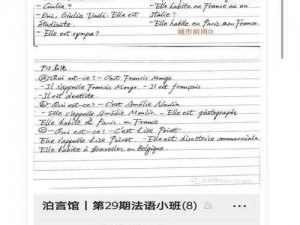 - Giulia ?
- Elle habite en France ou en
- Oui, Giulia Vadi. Elle est
Italie ?
étudiante.
- Elle habite en Paris en France
- Elle est sympa ?
城市前用à
- Qui est-ce ? - C'est Francis Monge
- Il s'appelle Francis Monge - Il est français
- Il est dentiste
- Qui est-ce ? - C'est Amélie
- Elle s'appelle Amélie - Elle est photographe
Elle habite à Paris en France
- Qui est-ce ? - C'est Lise
Elle s'appelle Lise Elle est directrice commerciale
Elle habite à Bruxelles en Belgique
泊言馆丨第29期法语小班(8)